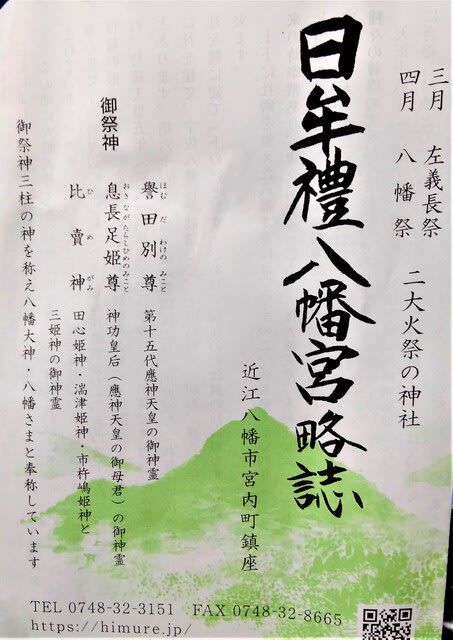 三月 左義長祭
四月 八幡祭
二大火祭の神社
日牟禮八幡宮略誌
近江八幡市宮内町鎮座
御祭神
譽田別尊 第十五代應神天皇の御神霊
ほむだわけのみこと
息長足姫尊 神功皇后（應神天皇の御母君）の御神霊
おきながたらしひめのみこと
比賣神 田心姫神・湍津姫神・市杵嶋姫神と
ひめがみ
三姫神の御神霊
御祭神三柱の神を称え八幡大神・八幡さまと奉称しています
TEL 0748-32-3151 FAX 0748-32-8665
https://himure.jp/